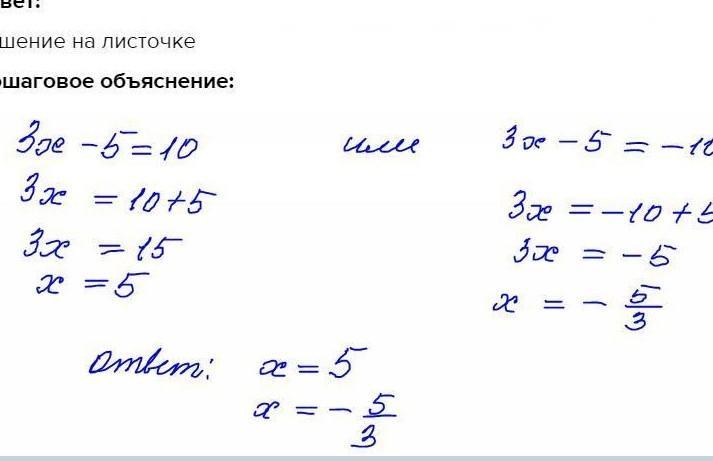 вет:
шение на листочке
ошаговое объяснение:
3x - 5 = 10 или 3x - 5 = -10
3x = 10 + 5 3x = -10 + 5
3x = 15 3x = -5
x = 5 x = - 5/3
ответ: x = 5
x = - 5/3